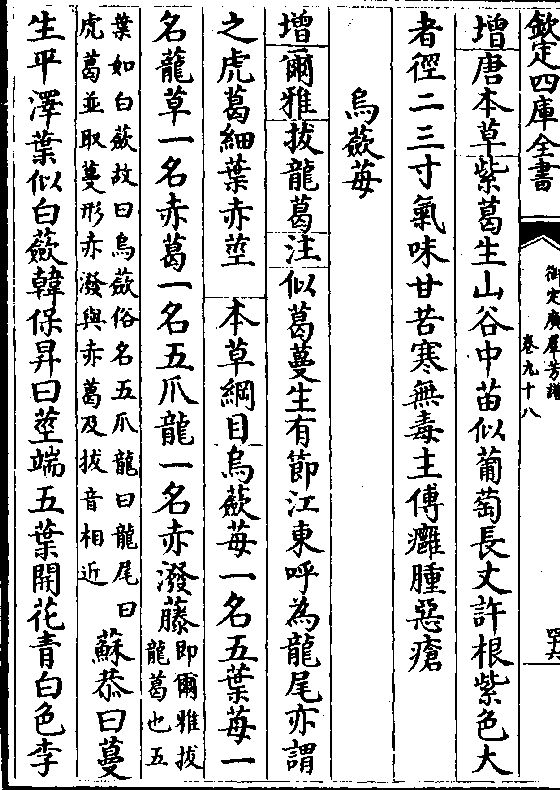 欽定四庫全書
御定廣羣芳譜
卷九十八
增唐本草紫葛生山谷中苗似葡萄長丈許根紫色大
者徑二三寸氣味甘苦寒無毒主傅癰腫惡瘡
烏蘞莓
增爾雅拔龍葛注似葛蔓生有節江東呼為龍尾亦謂
之虎葛細葉赤莖 本草綱目烏蘞莓一名五葉莓一
名龍草一名赤葛一名五爪龍一名赤潑藤
即爾雅拔
龍葛也五
葉如白蘞故曰烏蘞俗名五爪龍曰龍尾曰
虎葛並取蔓形赤潑與赤葛及拔音相近
蘇恭曰蔓
生平澤葉似白蘞韓保昇曰莖端五葉開花青白色李